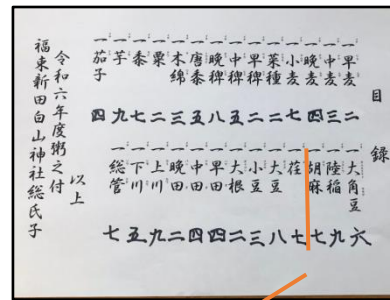 目録
一早麦 二
一中麦 三
一晩麦 四
一小麦 七
一菜種 二
一早稗 二
一中稗 五
一晩稗 八
一唐黍 五
一木綿 三
一粟 二
一黍 七
一芋 九
一茄子 四
一大角豆 六
一陸稲 九
一胡麻 七
一荏 七
一大豆 八
一小豆 三
一大根 二
一早田 四
一中田 四
一晩田 二
一上川 九
一下川 五
一総管 七
以上
令和六年度粥之付
福束新田白山神社総氏子